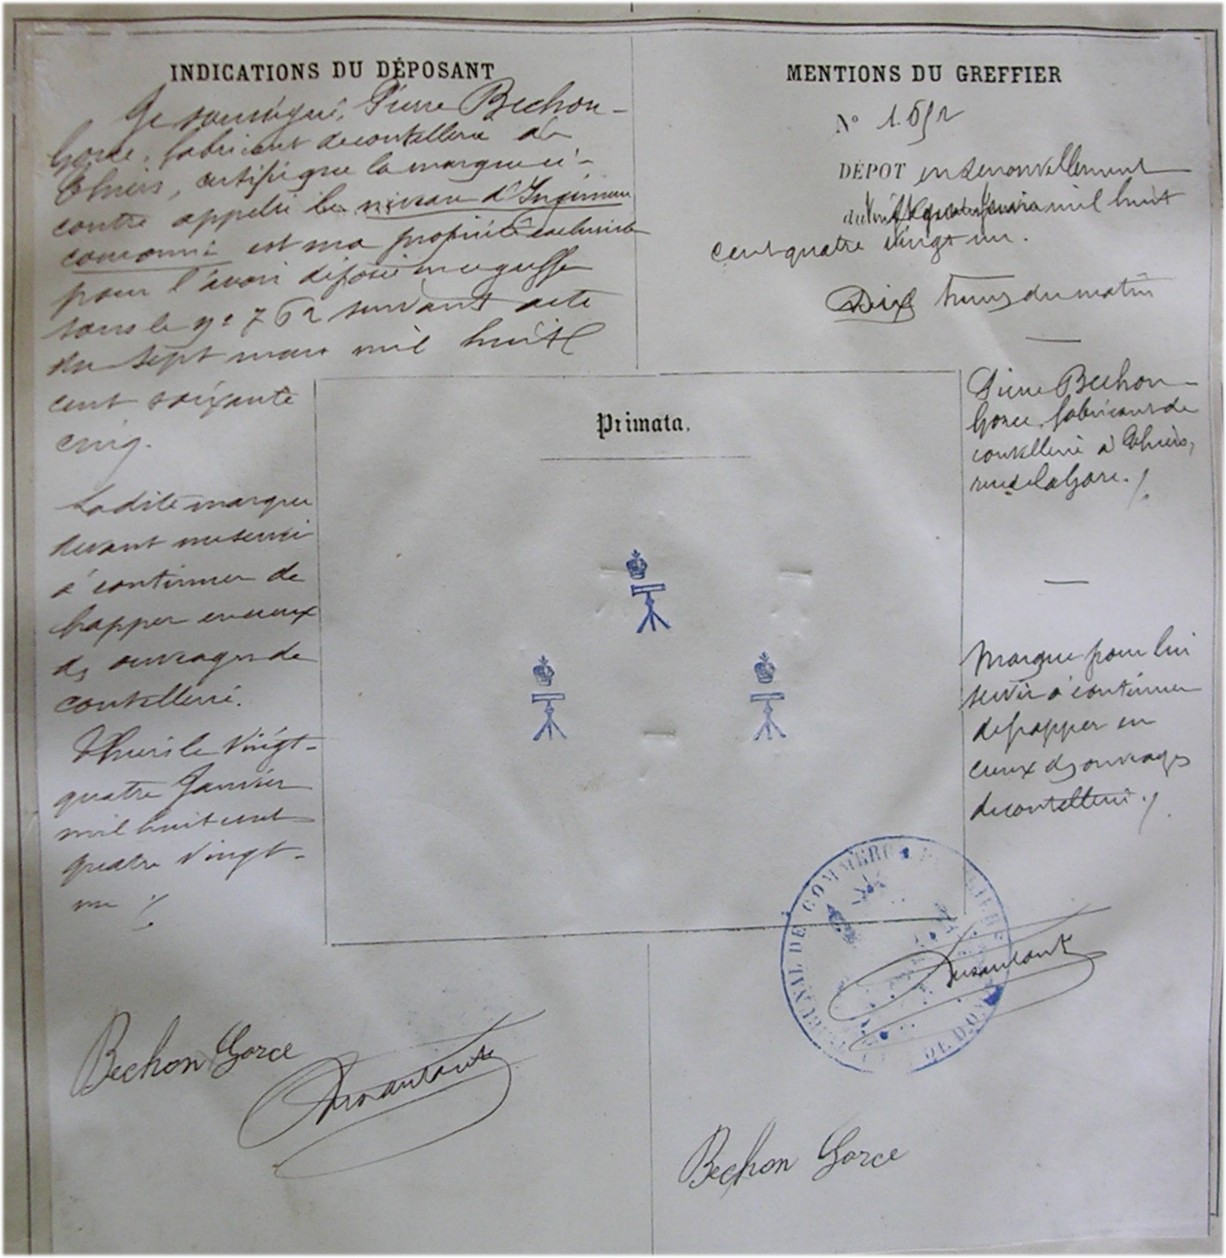 INDICATIONS DU DÉPOSANT
Je soussigné, Pierre Bechon-
Gorce, fabricant de coutellerie à
Thiers, certifie que la marque ci-
contre appelée le niveau d'Ingénieur
couronné est ma propriété exclusive
pour l'avoir déposée au greffe
sous le n° 762 suivant acte
du sept mars mil huit
cent soixante
cinq.
Ladite marque
devant me servir
à continuer de
frapper en creux
des ouvrages de
coutellerie.
Thiers le vingt-
quatre Janvier
mil huit cent
quatre vingt-
un ./.
Bechon Gorce
MENTIONS DU GREFFIER
N° 1.692
DÉPOT en renouvellement
du vingt quatre Janvier mil huit
cent quatre vingt un.
Dix heures du matin
Pierre Bechon-
Gorce, fabricant de
coutellerie à Thiers,
rue de la Gare ./.
Marque pour lui
servir à continuer
de frapper en
creux des ouvrages
de coutellerie ./.
Primata.
TRIBUNAL DE COMMERCE
DE DOME
Bechon Gorce